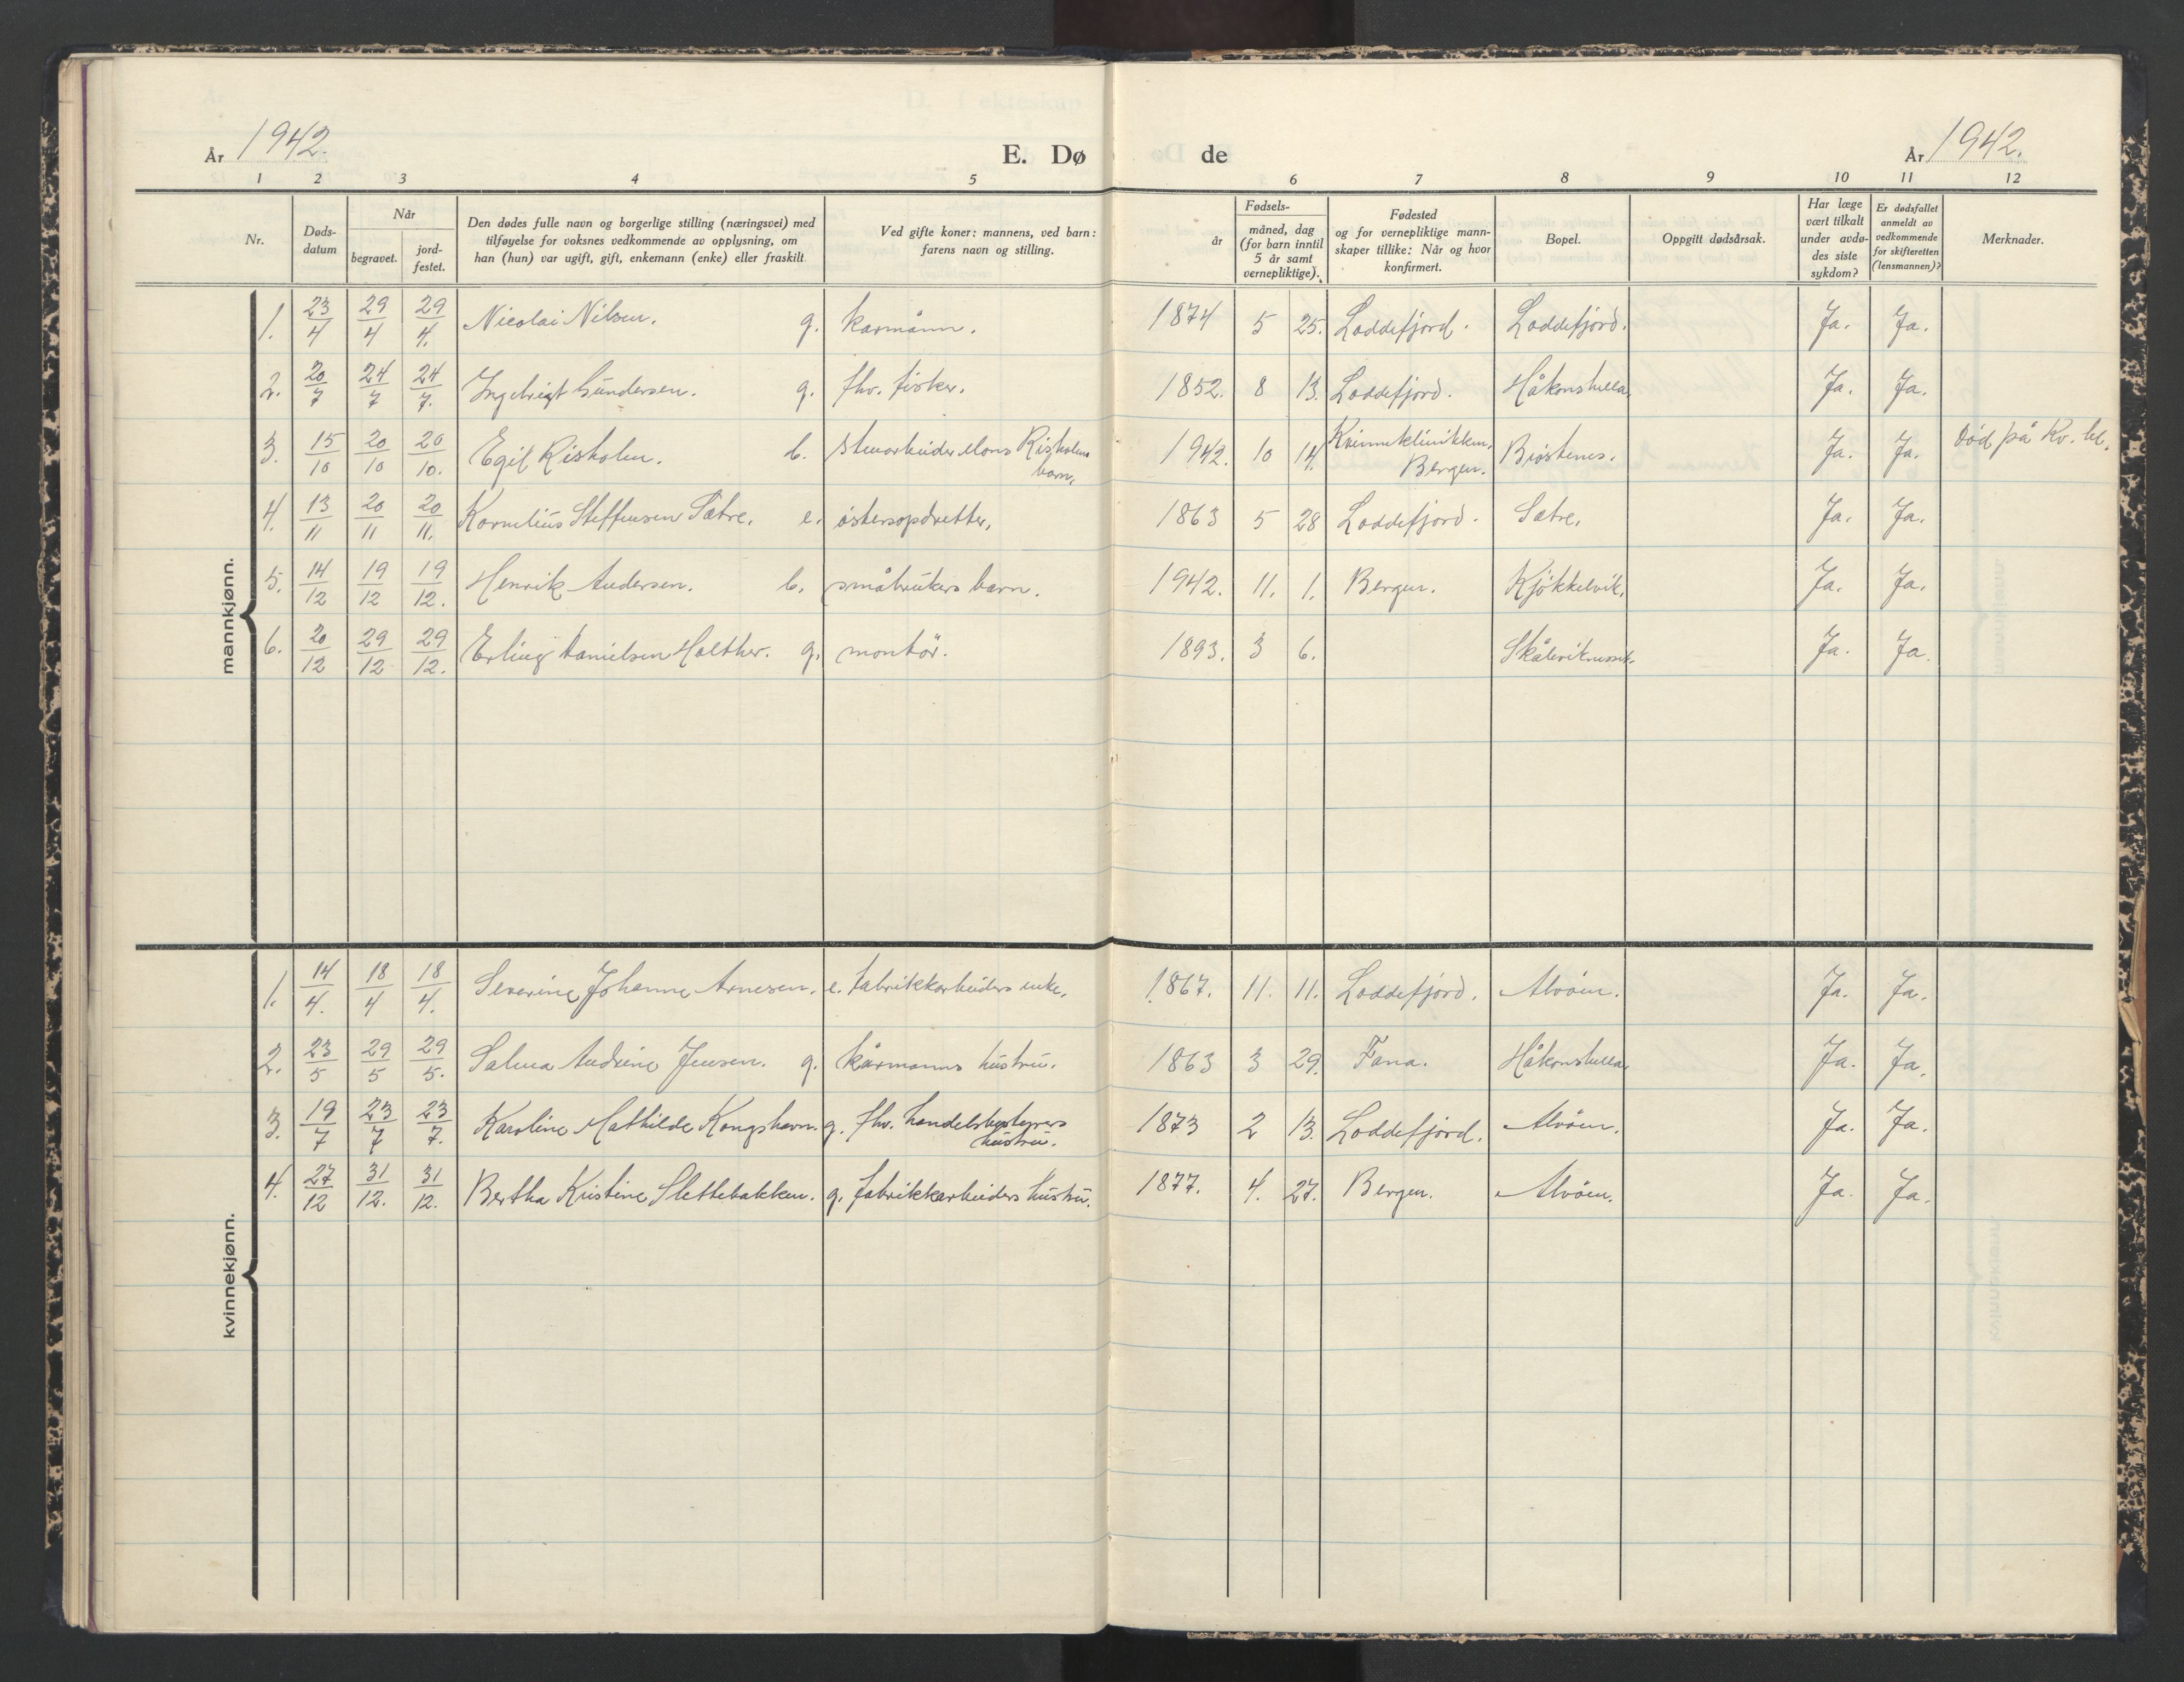 År 1942. E. Dø de År 1942.
1 2 3 4 5 6 7 8 9 10 11 12
Nr.
Døds-
datum
Når
begravet.
jord-
festet.
Den dødes fulle navn og borgerlige stilling (næringsvei) med
tilføyelse for voksnes vedkommende av opplysning, om
han (hun) var ugift, gift, enkemann (enke) eller fraskilt.
Ved gifte koner: mannens, ved barn:
farens navn og stilling.
Fødsels-
år
måned, dag
(for barn inntil
5 år samt
vernepliktige).
Fødested
og for vernepliktige mann-
skaper tillike: Når og hvor
konfirmert.
Bopel.
Oppgitt dødsårsak.
Har læge
vært tilkalt
under avdø-
des siste
sykdom?
Er dødsfallet
anmeldt av
vedkommende
for skifteretten
(lensmannen)?
Merknader.
mannkjønn.
1. 23/4 29/4 29/4. Nicolai Nilsen. g. kårmann. 1874 5 25. Loddefjord. Loddefjord. Ja. Ja.
2. 20/7 24/7 24/7. Ingebrigt Gundersen. g. fhv. fisker. 1852. 8 13. Loddefjord. Håkonshella. Ja. Ja.
3. 15/10 20/10 20/10. Egil Risholm. b. stenarbeider Mons Risholms
barn. 1942. 10 14. Kvinneklinikken,
Bergen. Brøstenes. Ja. Ja. Død på Kv. kl.
4. 13/11 20/11 20/11. Kornelius Steffensen Sætre. e. østersopdretter. 1863 5 28 Loddefjord. Sætre. Ja. Ja.
5. 14/12 19/12 19/12. Henrik Andersen. b. småbrukers barn. 1942. 11. 1. Bergen. Kjøkkelvik. Ja. Ja.
6. 20/12 29/12 29/12. Erling Danielsen Holther. g. montör. 1893. 3 6. Ja. Ja.
kvinnekjønn.
1. 14/4. 18/4 18/4. Severine Johanne Arnesen. e. fabrikkarbeiders enke. 1867. 11. 11. Loddefjord. Alvøen. Ja. Ja.
2. 23/5 29/5 29/5. Salma Andrine Jensen. g. kårmanns hustru. 1863 3 29. Fana. Håkonshella. Ja. Ja.
3. 19/7 23/7 23/7. Karoline Mathilde Kongshavn. g. fhv. handelsbestyrers
hustru. 1873 2 13. Loddefjord. Alvøen. Ja. Ja.
4. 27/12 31/12. 31/12. Bertha Kristine Slettebakken. g. fabrikkarbeiders hustru. 1877. 4. 27. Bergen. Alvøen. Ja. Ja.